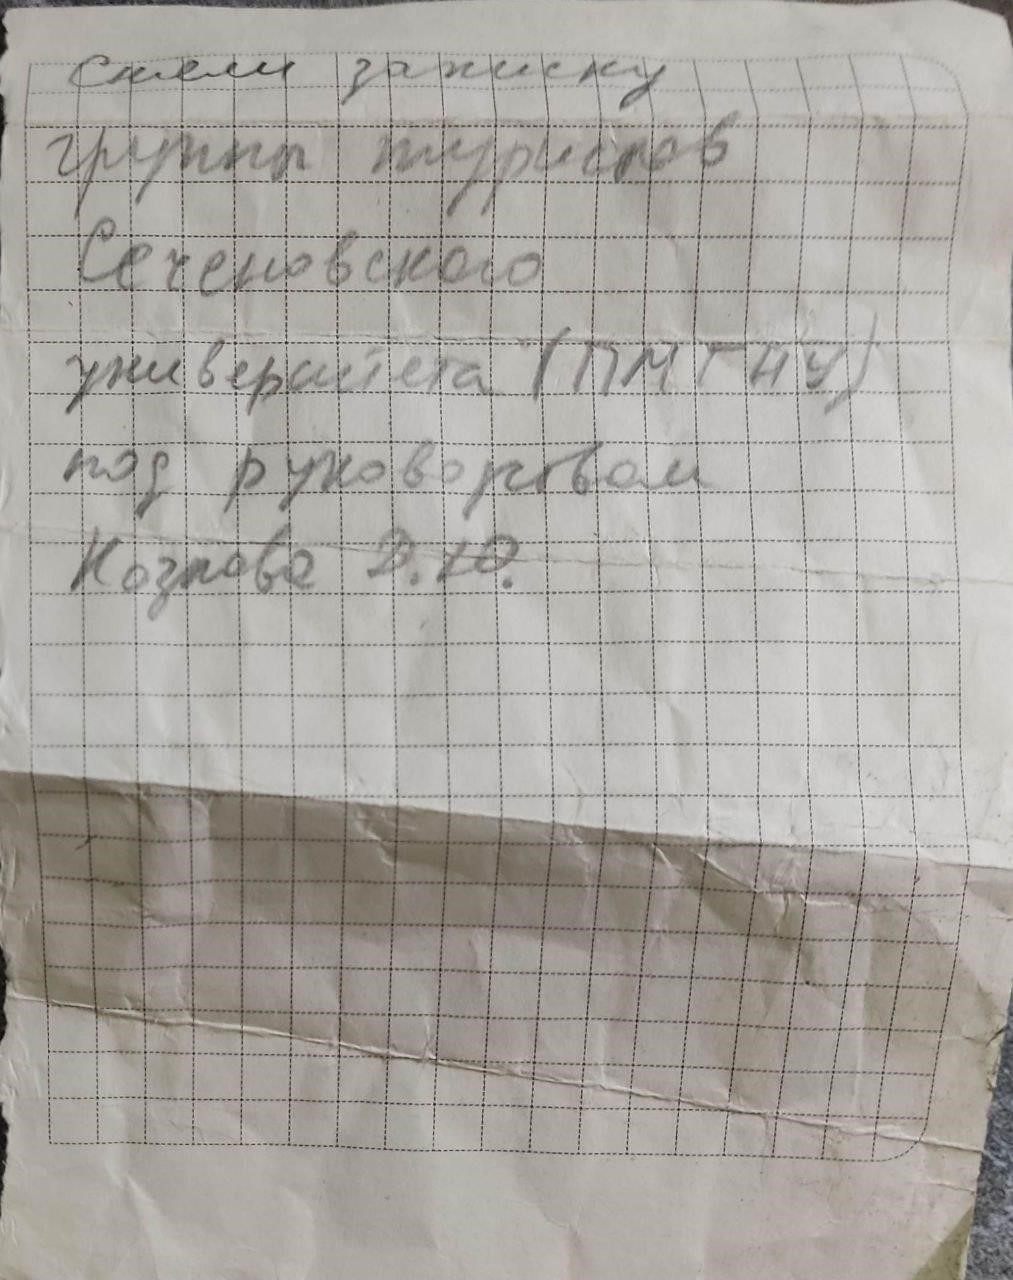 Сняли записку
группы туристов
Сеченовского
университета (ПМГМУ)
под руководством
Козлова Д.Ю.